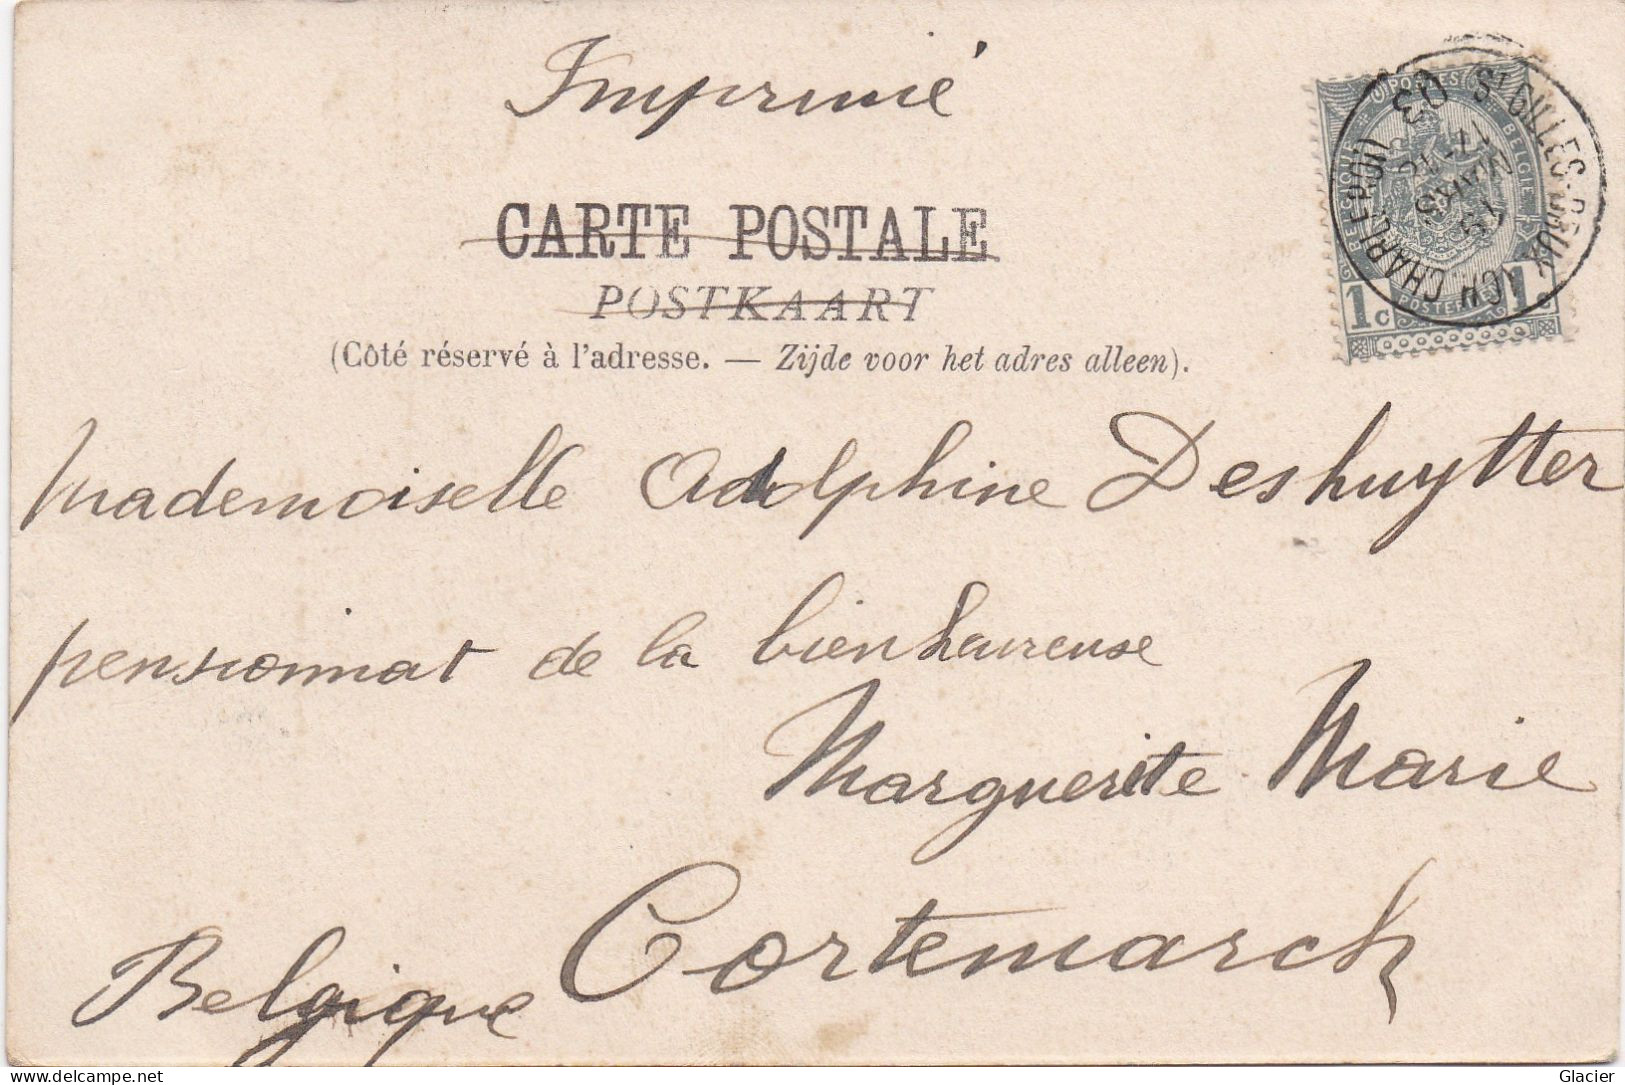 Imprimé
CARTE POSTALE
POSTKAART
(Côté réservé à l'adresse. — Zijde voor het adres alleen).
POSTES BELGIQUE BELGIE
1 c 1 c
ST GILLES-BRUX (CH CHARLEROI)
03
Mademoiselle Adolphine Deshuytter
pensionnat de la bienheureuse
Marguerite Marie
Cortemarck
Belgique
delcampe.net
Glacier